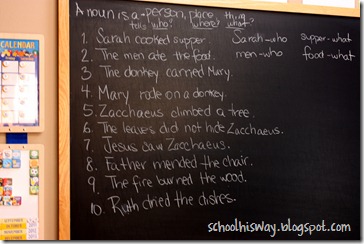 A noun is a person, place, thing
tells who? where? what?
1. Sarah cooked supper. Sarah-who supper-what
2. The men ate the food. men-who food-what
3. The donkey carried Mary.
4. Mary rode on a donkey.
5. Zacchaeus climbed a tree.
6. The leaves did not hide Zacchaeus.
7. Jesus saw Zacchaeus.
8. Father mended the chair.
9. The fire burned the wood.
10. Ruth dried the dishes.
CALENDAR
schoolhisway.blogspot.com